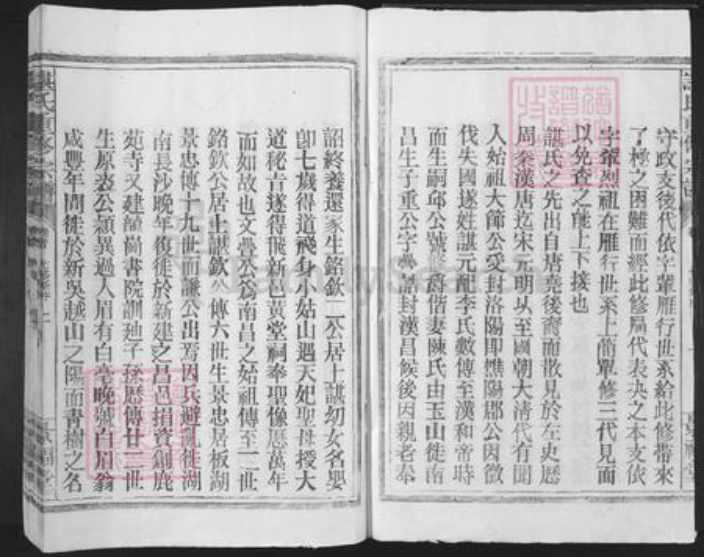 守政支後代依字輩雁行世系給此修帶來
了極之困難而經此修屬代表决之本支依
字輩烈祖在雁行世系上前單修三代見面
以免查之能上下接也
諶氏之先出自唐堯後裔而散見於左史歷
周秦漢唐迄宋元明以至國朝大清代有聞
人始祖大節公受封洛陽即樵陽郡公因徵
伐失國遂姓諶元配李氏數傳至漢和帝時
而生嗣邱公號修爵偕妻陳氏由玉山徙南
昌生子重公字 誥封漢昌候後因親老奉
詔終養還家生銘欽二公居上諶幼女名嬰
卽七歲得道飛身小姑山遇天妃聖母授大
道秘音遂得飛新邑黄堂祠奉聖像歷萬年
而如故也文疊公爲南昌之始祖傳至二世
銘欽公居上諶欽公傳六世生景忠居板湖
景忠傳十九世而謙公出焉因兵避亂徙湖
南長沙晚年復徙於新建之昌邑捐資創鹿
苑寺又建 書院訓廸子孫歷傳廿二世
生原裘公穎異過人眉有白毫晚號白眉翁
咸豐年間徙於新吳越山之陽面青樹之名
諶氏重修宗譜